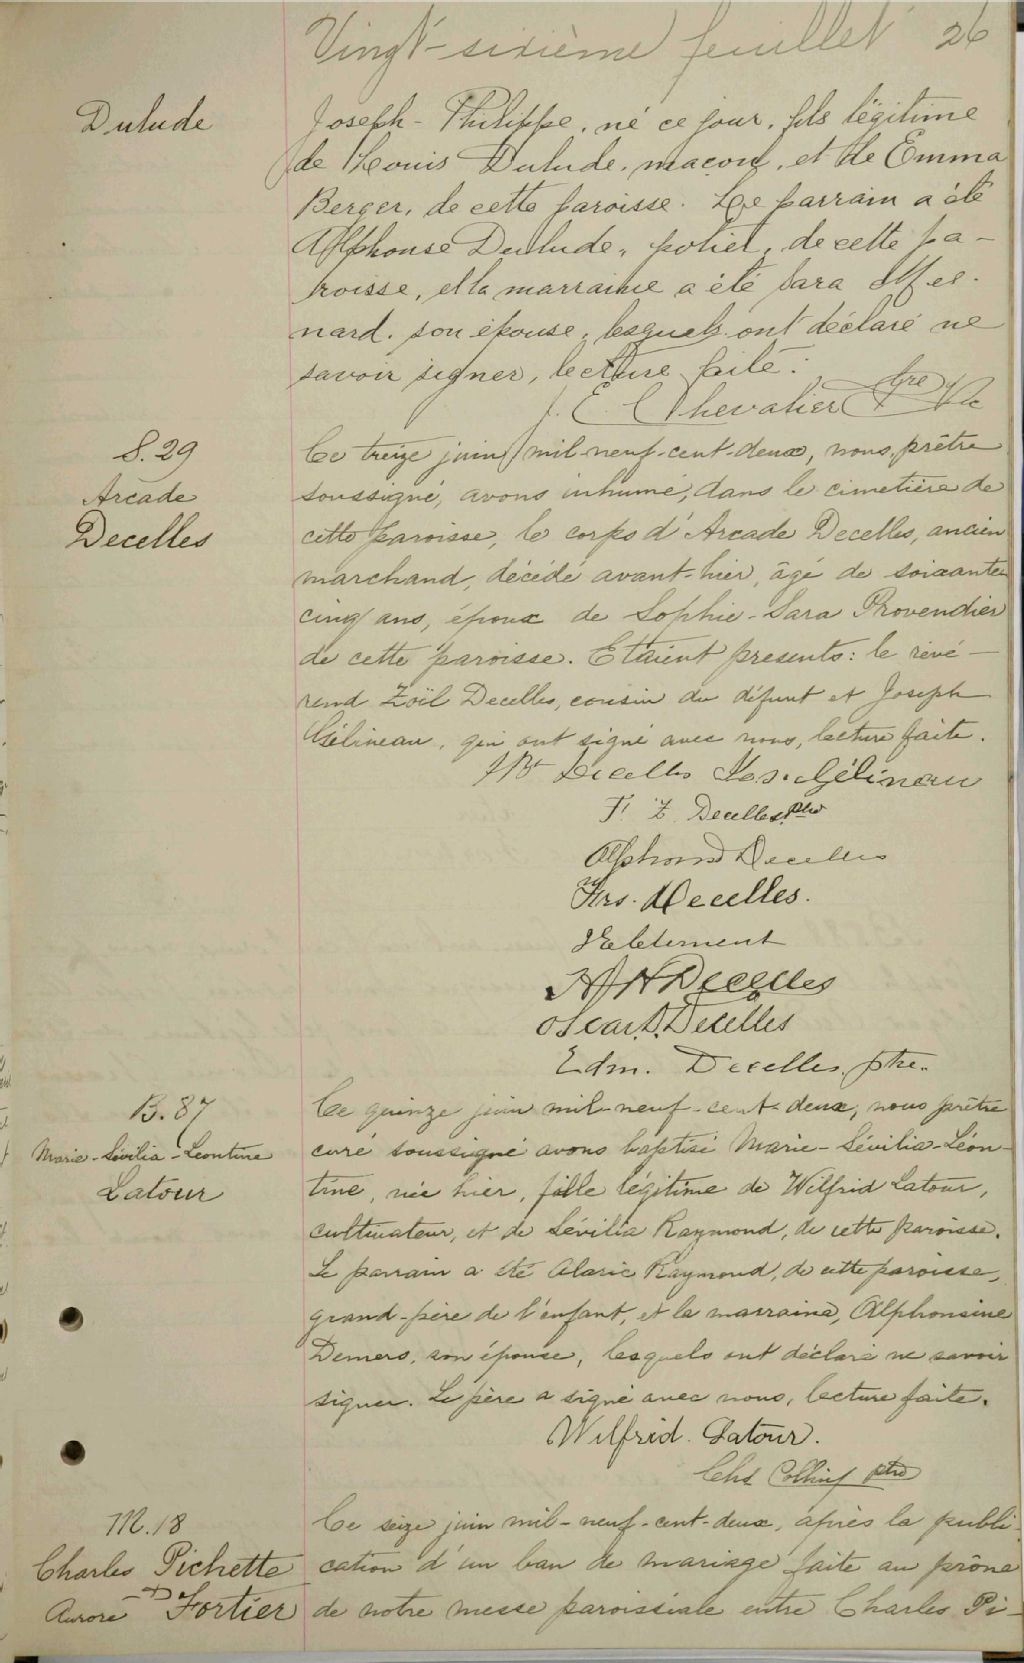 Vingt-sixième feuillet 26
Dulude
Joseph-Philippe, né ce jour, fils légitime
de Louis Dulude, maçon, et de Emma
Berger, de cette paroisse. Le parrain a été
Alphonse Dulude, potier, de cette pa-
roisse, et la marraine a été Sara Mes-
nard, son épouse, lesquels ont déclaré ne
savoir signer, lecture faite.
J. E. Chevalier Ptre Vic
S. 29
Arcade
Decelles
Ce treize juin mil-neuf-cent-deux, nous, prêtre
soussigné, avons inhumé, dans le cimetière de
cette paroisse, le corps d'Arcade Decelles, ancien
marchand, décédé avant-hier, âgé de soixante
cinq ans, époux de Sophie-Sara Provendier
de cette paroisse. Etaient présents: le révé-
rend Zoïl Decelles, cousin du défunt et Joseph
Gélineau, qui ont signé avec nous, lecture faite.
JBt Decelles Jos. Gélineau
F. Z. Decelles Ptre
Alphonse Decelles
Frs. Decelles.
Decelles
Oscar D. Decelles
Edm. Decelles, ptre.
B. 87
Marie-Sévilia-Léontine
Latour
Ce quinze juin mil-neuf-cent-deux, nous prêtre
curé soussigné avons baptisé Marie-Sévilia-Léon-
tine, née hier, fille légitime de Wilfrid Latour,
cultivateur, et de Sévilia Raymond, de cette paroisse.
Le parrain a été Alaric Raymond, de cette paroisse,
grand-père de l'enfant, et la marraine, Alphonsine
Demers, son épouse, lesquels ont déclaré ne savoir
signer. Le père a signé avec nous, lecture faite.
Wilfrid Latour.
Chs Collin ptre
M. 18
Charles Pichette
&
Aurore Fortier
Ce seize juin mil-neuf-cent-deux, après la publi-
cation d'un ban de mariage faite au prône
de notre messe paroissiale entre Charles Pi-